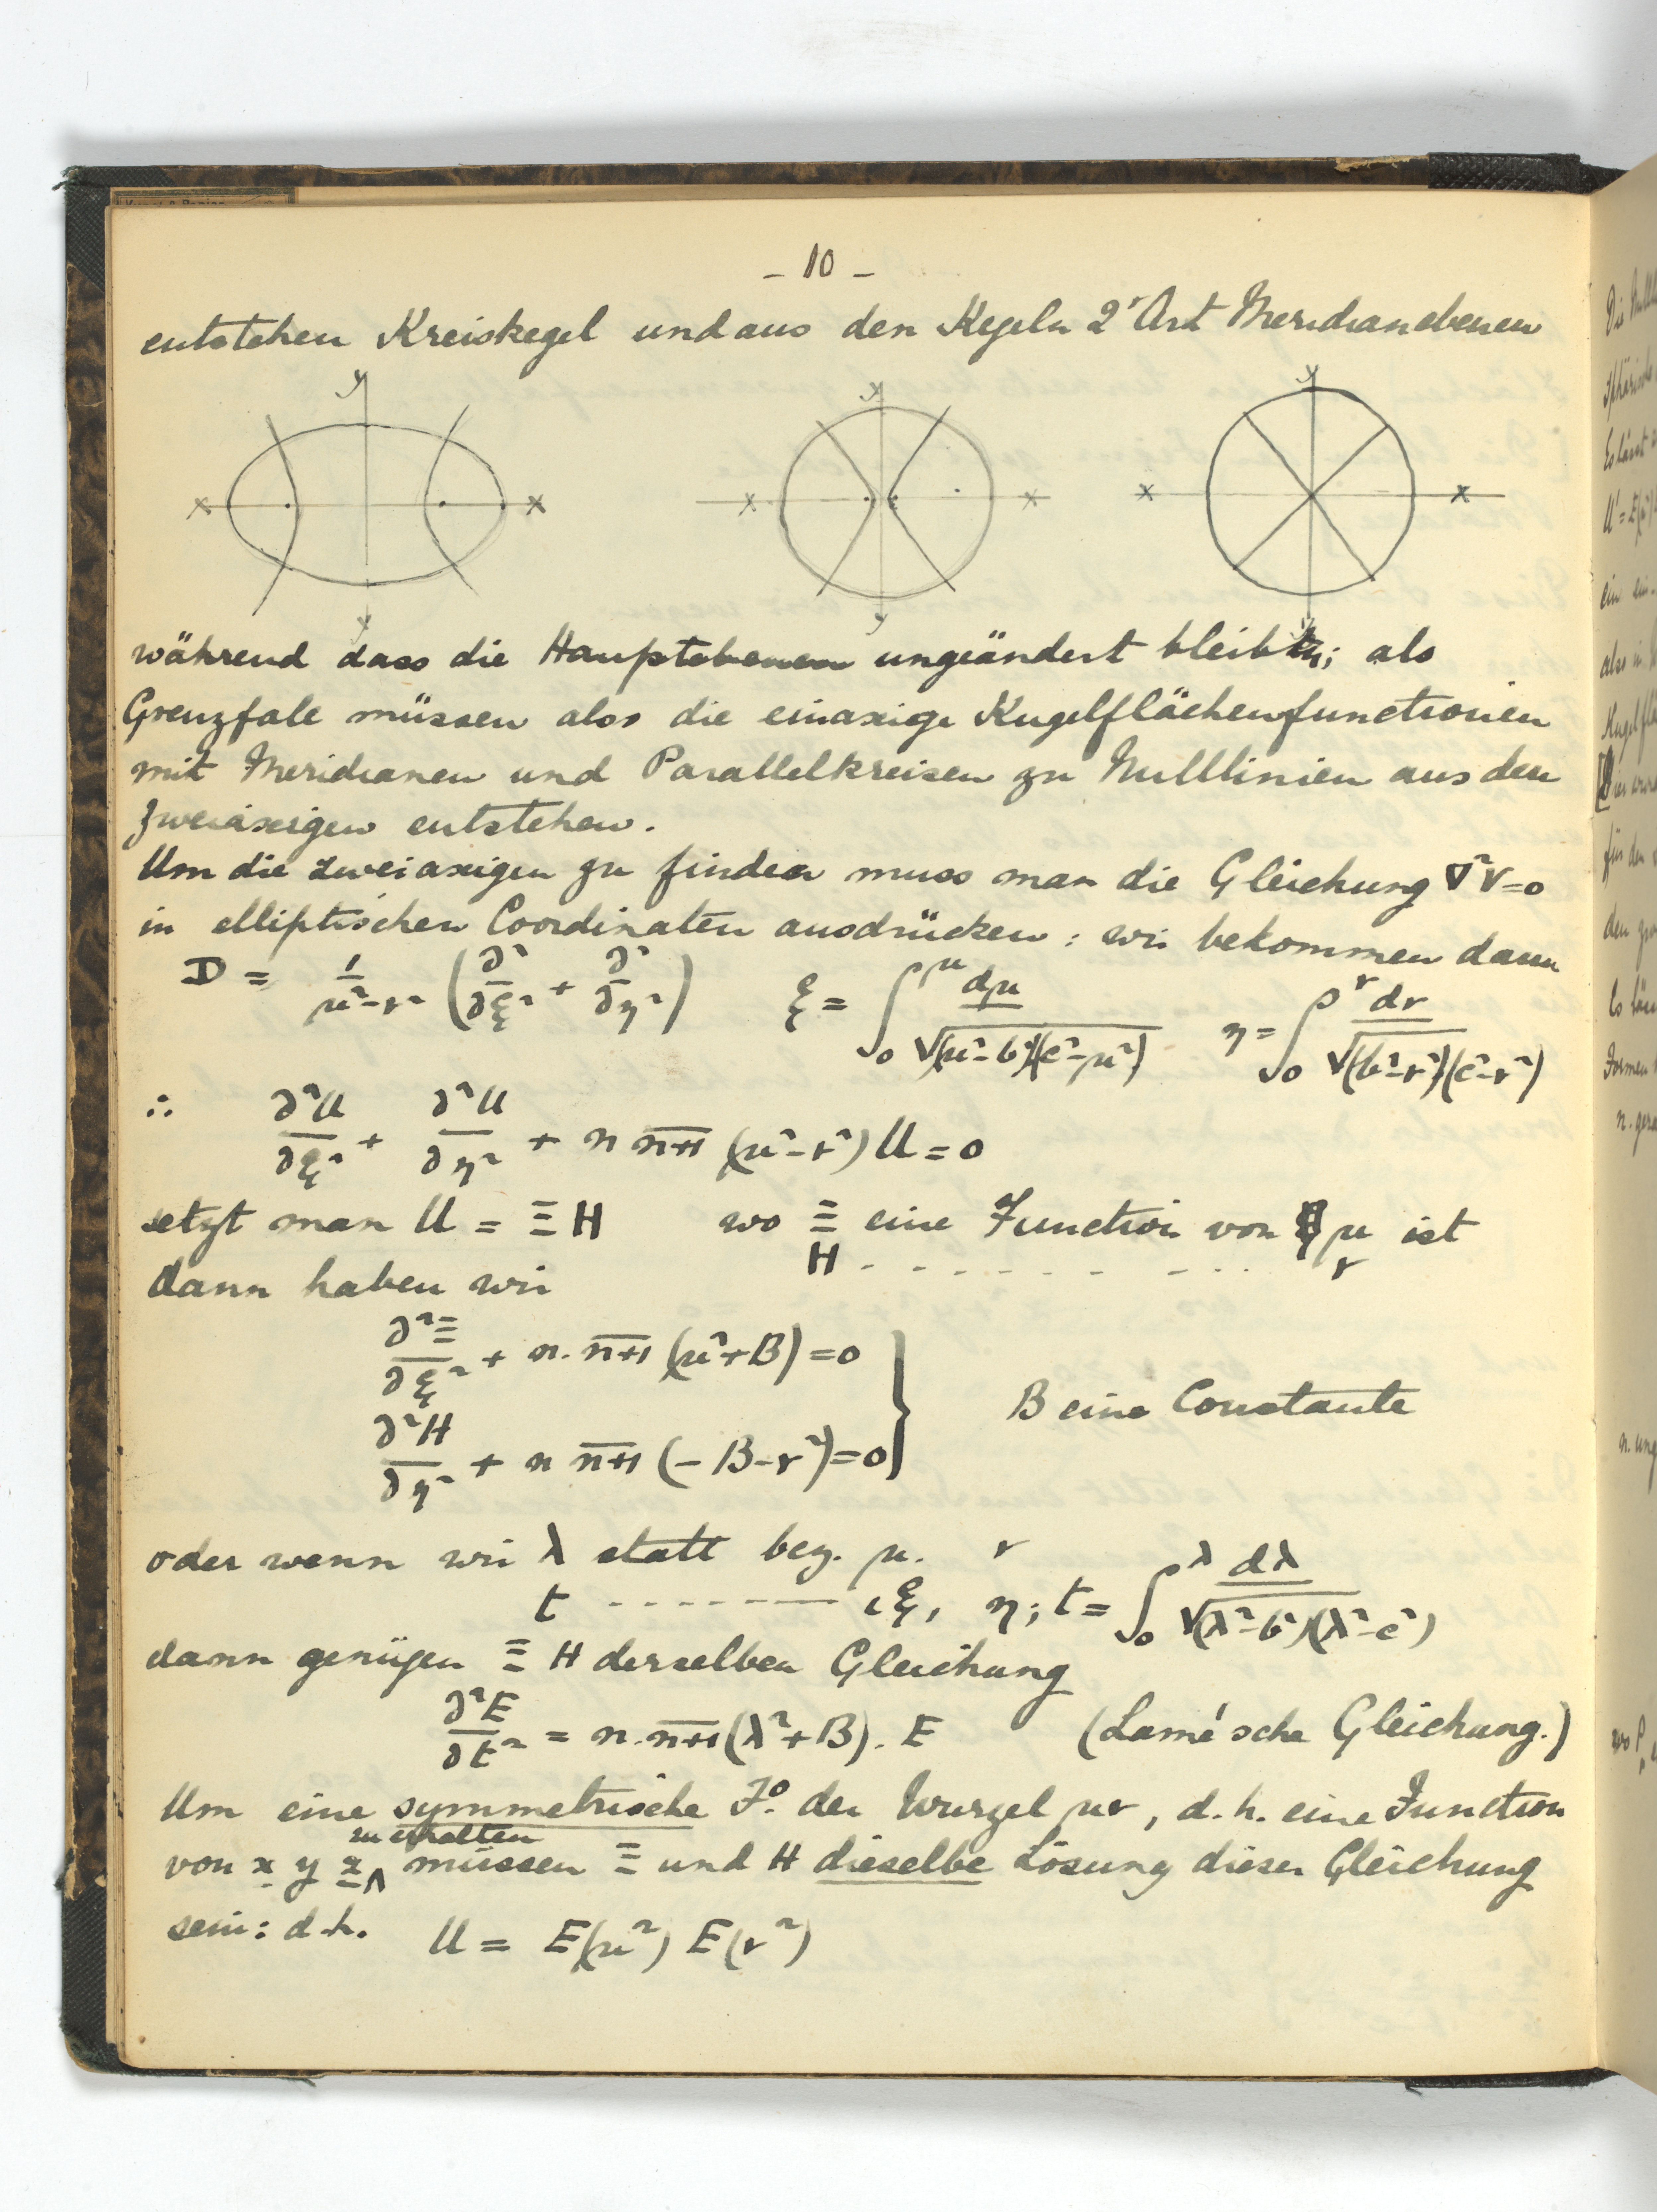 – 10 –
entstehen Kreiskegel und aus den Kegeln 2ʳ Art Meridianebenen
y y y
x x x x x x
y y y
während dass die Hauptebenen ungeändert bleiben; als
Grenzfale müssen also die einaxige Kugelflächenfunctionen
mit Meridianen und Parallelkreisen zu Nulllinien aus den
zweiaxigen entstehen.
Um die zweiaxigen zu finden muss man die Gleichung ∇²V=0
in elliptischen Coordinaten ausdrücken: wir bekommen dann
D = 1/(μ²-ν²) (∂²/∂ξ² + ∂²/∂η²) ξ = ∫₀^μ dμ/√(μ²-b²)(c²-μ²) η = ∫₀^ν dν/√(b²-ν²)(c²-ν²)
∴ ∂²U/∂ξ² + ∂²U/∂η² + n n+1 (μ²-ν²) U = 0
setzt man U = Ξ H wo Ξ eine Function von μ ist
H - - - - - - - - - ν
dann haben wir
∂²Ξ/∂ξ² + n. n+1 (μ²+B) = 0
B eine Constante
∂²H/∂η² + n n+1 (-B-ν²) = 0
oder wenn wir λ statt bez. μ. ν
t - - - - - - - ιξ, η; t = ∫₀^λ dλ/√(λ²-b²)(λ²-c²)
dann genügen Ξ H derselben Gleichung
∂²E/∂t² = n. n+1 (λ²+B). E (Lamé'sche Gleichung.)
Um eine symmetrische Fⁿ. der Wurzel μν, d.h. eine Function
zu erhalten
von x y z ∧ müssen Ξ und H dieselbe Lösung dieser Gleichung
sein: d.h. U = E(μ²) E(ν²)